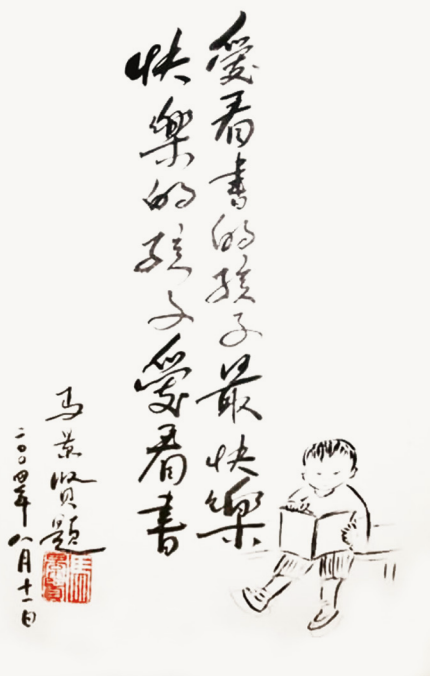 愛看書的孩子最快樂
快樂的孩子愛看書
馬景賢題
二〇〇四年八月十一日